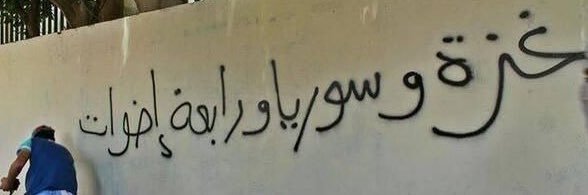 غزة وسوريا ورابعة إخوات